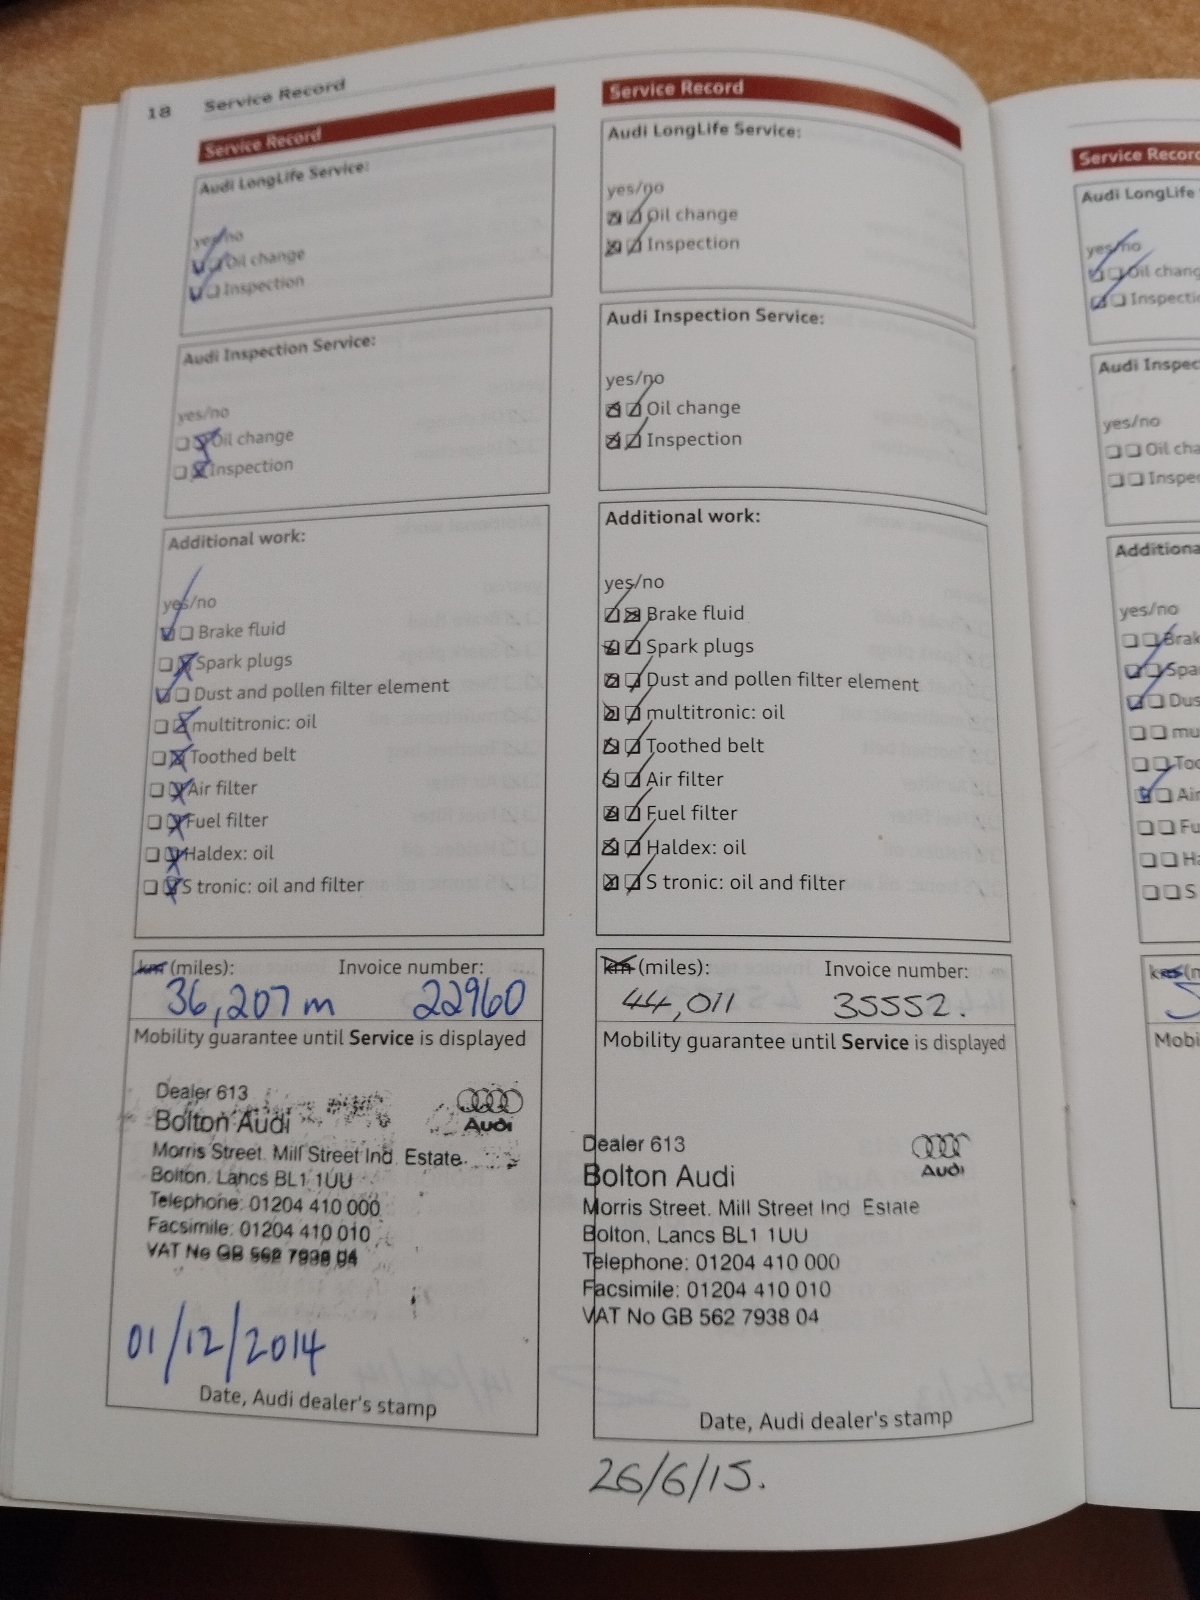 18 Service Record
Service Record
Audi LongLife Service:
yes/no
Oil change
Inspection
Audi Inspection Service:
yes/no
Oil change
Inspection
Additional work:
yes/no
Brake fluid
Spark plugs
Dust and pollen filter element
multitronic: oil
Toothed belt
Air filter
Fuel filter
Haldex: oil
S tronic: oil and filter
km (miles): Invoice number:
36,207 m 22960
Mobility guarantee until Service is displayed
Dealer 613
Bolton Audi
Audi
Morris Street. Mill Street Ind. Estate.
Bolton. Lancs BL1 1UU
Telephone: 01204 410 000
Facsimile: 01204 410 010
VAT No GB 562 7938 04
01/12/2014
Date, Audi dealer's stamp
Service Record
Audi LongLife Service:
yes/no
Oil change
Inspection
Audi Inspection Service:
yes/no
Oil change
Inspection
Additional work:
yes/no
Brake fluid
Spark plugs
Dust and pollen filter element
multitronic: oil
Toothed belt
Air filter
Fuel filter
Haldex: oil
S tronic: oil and filter
km (miles): Invoice number:
44,011 35552.
Mobility guarantee until Service is displayed
Dealer 613
Bolton Audi
Audi
Morris Street. Mill Street Ind Estate
Bolton, Lancs BL1 1UU
Telephone: 01204 410 000
Facsimile: 01204 410 010
VAT No GB 562 7938 04
Date, Audi dealer's stamp
26/6/15.
Service Record
Audi LongLife
yes/no
Oil chang
Inspectio
Audi Inspec
yes/no
Oil cha
Inspec
Additiona
yes/no
Brak
Spa
Dus
mu
Too
Air
Fu
Ha
S
km (m
Mobi